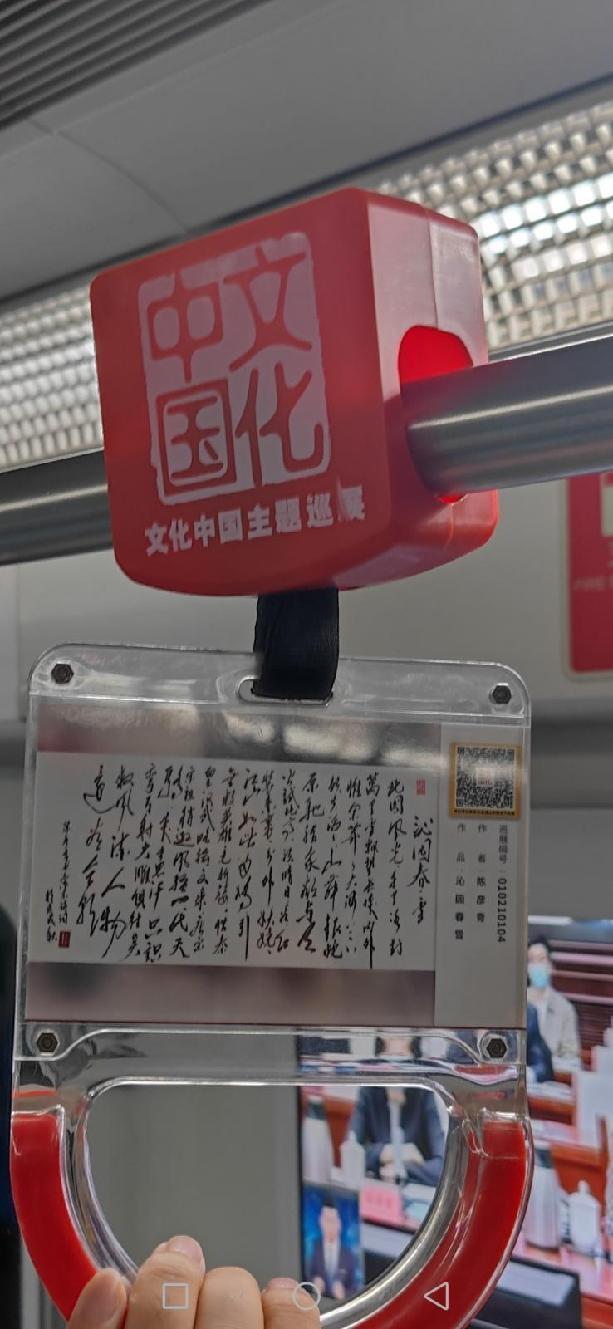 文化
中国
文化中国主题巡展
巡展编号：010210104
作 者：陈彦青
作 品：沁园春雪
沁园春雪
北国风光千里冰封
万里雪飘望长城内外
惟余莽莽大河上下
顿失滔滔山舞银蛇
原驰蜡象欲与天
公试比高须晴日看红
装素裹分外妖娆
江山如此多娇引
无数英雄竞折腰惜秦
皇汉武略输文采唐宗
宋祖稍逊风骚一代天
骄成吉思汗只识
弯弓射大雕俱往矣
数风流人物
还看今朝